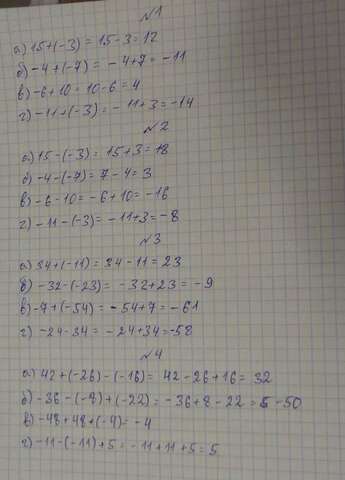 №1
а) 15+(-3) = 15-3 = 12
б) -4+(-7) = -4+7 = -11
в) -6+10 = 10-6 = 4
г) -11+(-3) = -11+3 = -14
№2
а) 15-(-3) = 15+3 = 18
б) -4-(-7) = 7-4 = 3
в) -6-10 = -6+10 = -16
г) -11-(-3) = -11+3 = -8
№3
а) 34+(-11) = 34-11 = 23
б) -32-(-23) = -32+23 = -9
в) -7+(-54) = -54+7 = -61
г) -24-34 = -24+34 = -58
№4
а) 42+(-26)-(-16) = 42-26+16 = 32
б) -36-(-8)+(-22) = -36+8-22 = -50
в) -48+48+(-4) = -4
г) -11-(-11)+5 = -11+11+5 = 5